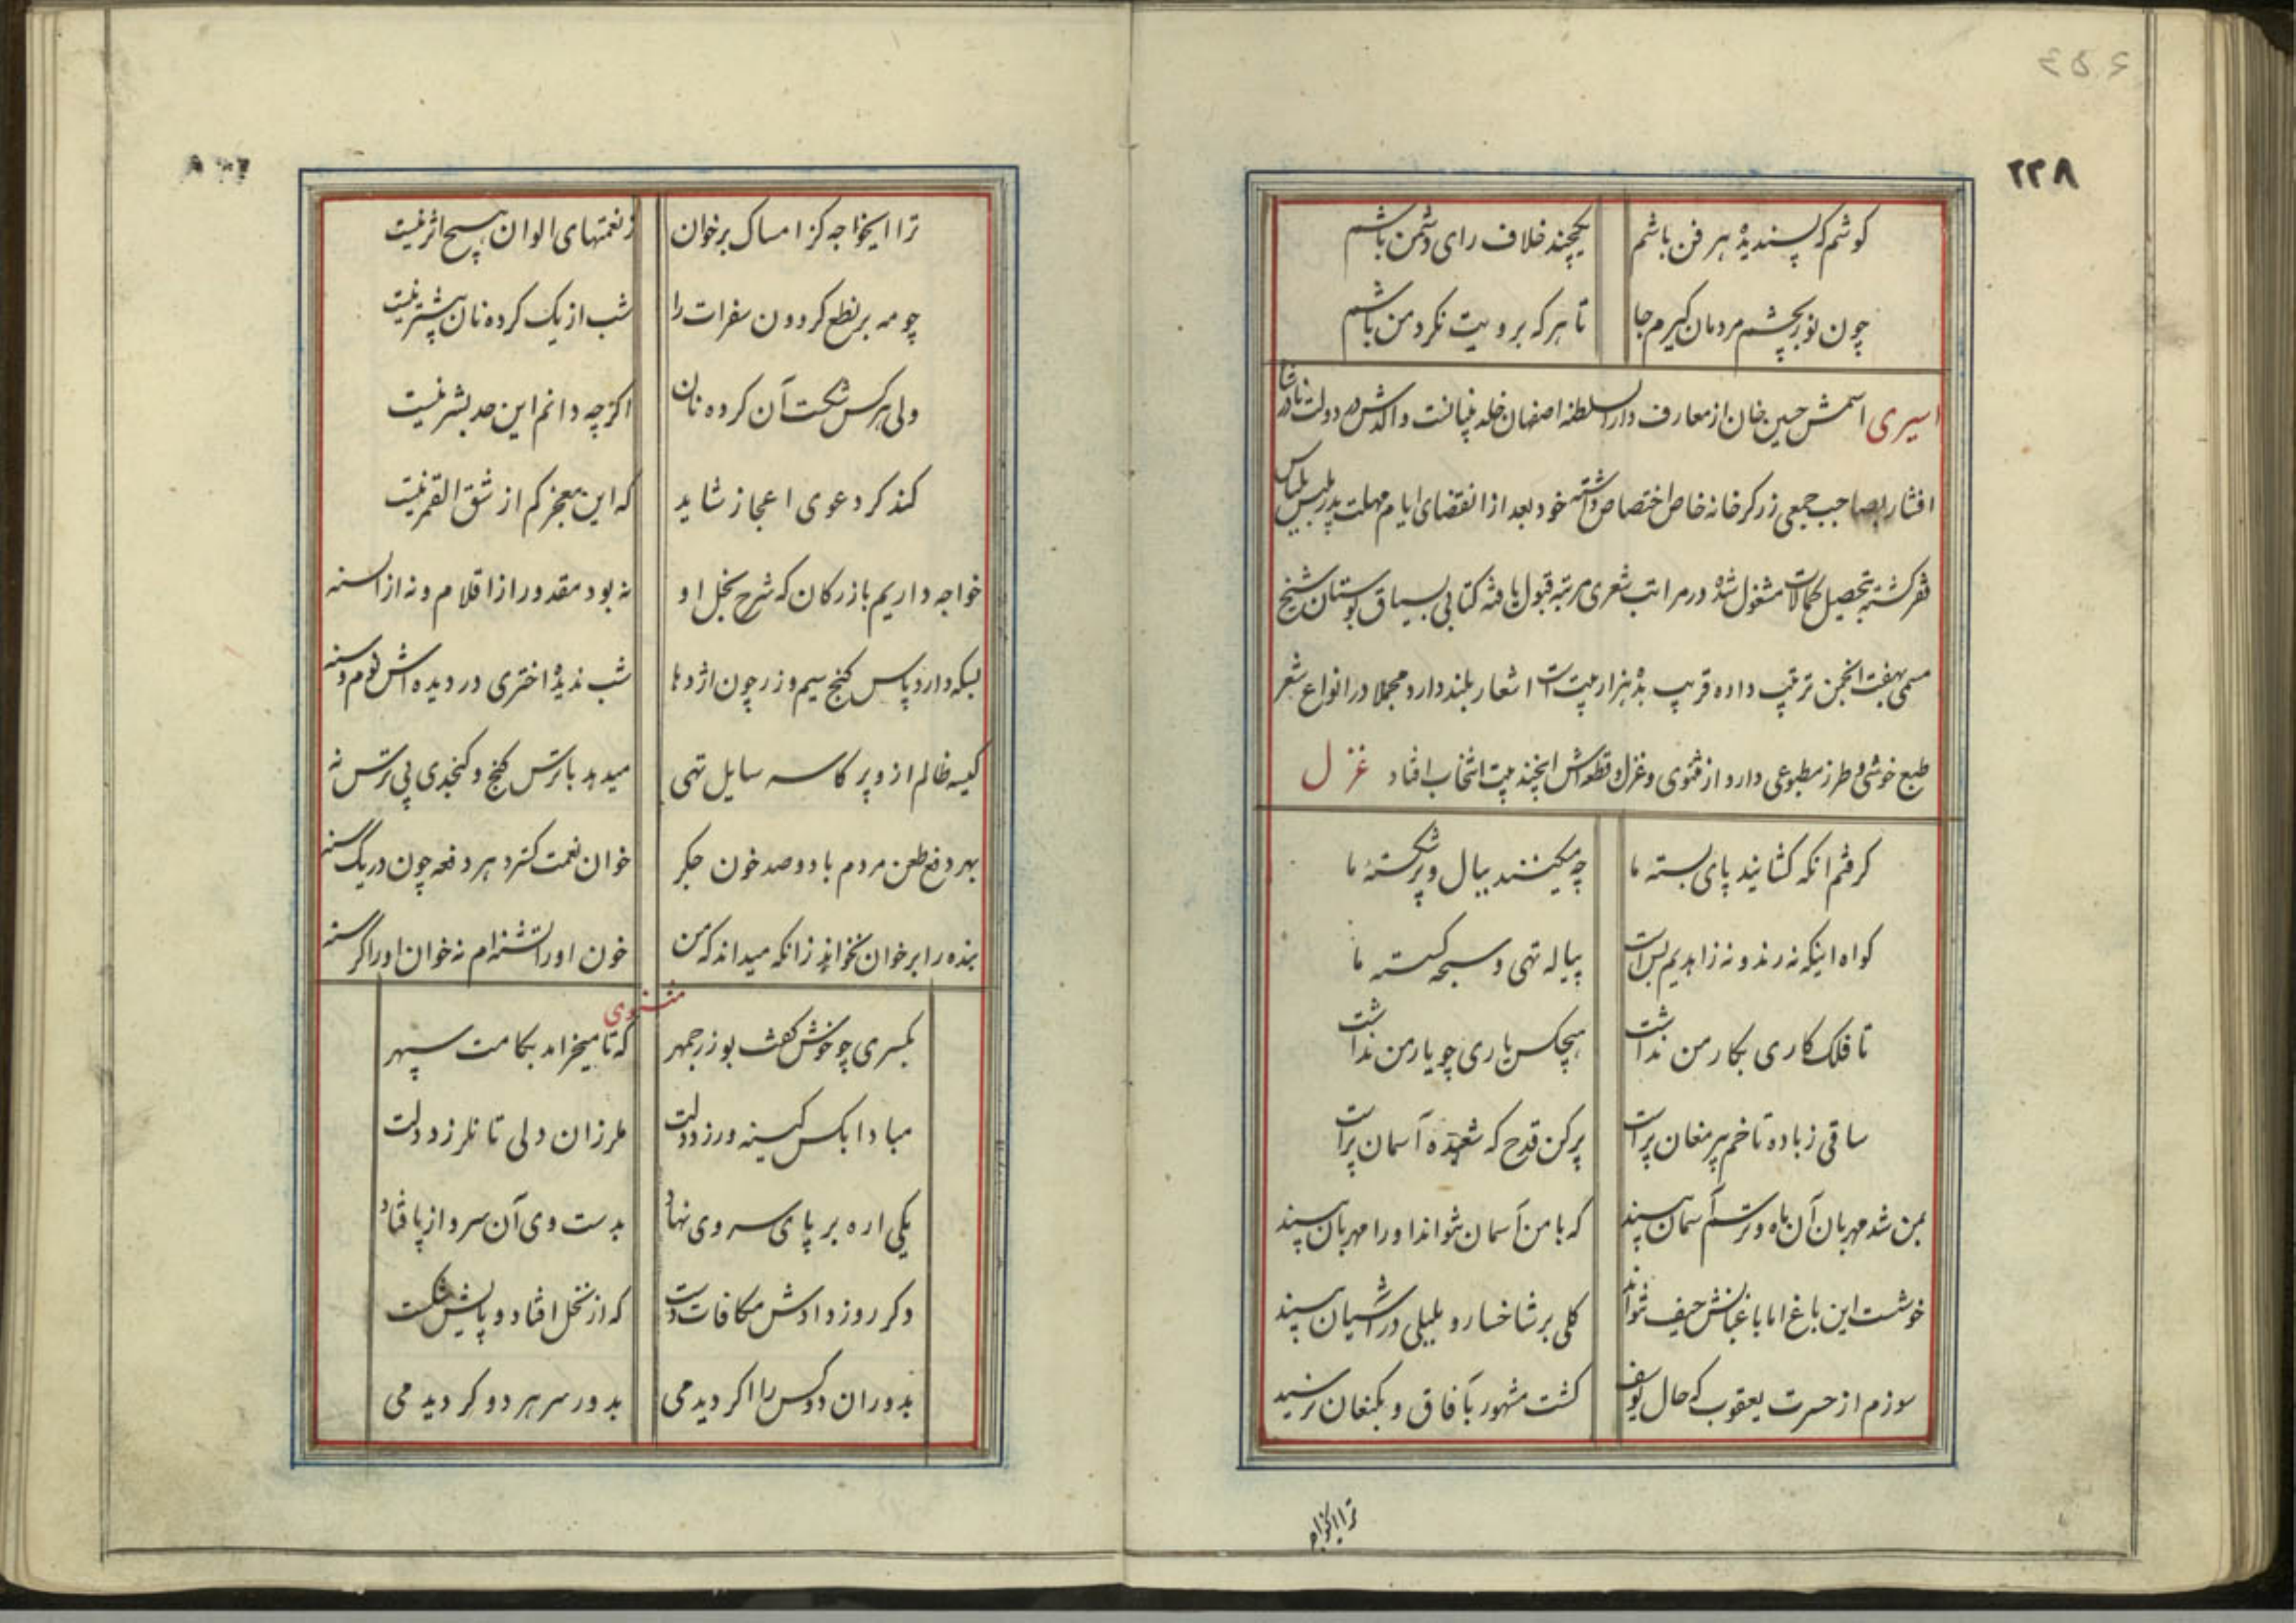 ۲۲۸
کوشم که پسندیده هر فن باشم یکچند خلاف رای دشمن باشم
چون نور بچشم مردمان گیرم جا تا هر که برویت نکرد من باشم
اسیری اسمش حسین خان از معارف دار السلطنه اصفهان خلد بنیانست والدش در دولت نادر شاه
افشار بصاحب جمعی زرکر خانه خاص اختصاص داشته خود بعد از انقضای ایام مهلت پدر ملبس بلباس
فقر کشته بتحصیل کمالات مشغول شده در مراتب شعری مرتبه قبول یافته کتابی بسیاق بوستان شیخ
مسمی بهفت انجمن ترتیب داده قریب بده هزار بیت است اشعار بلند دارد مجملا در انواع شعر
طبع خوشی و طرز مطبوعی دارد از مثنوی و غزل و قطعه اش اینچند بیت انتخاب افتاد غزل
کرفتم انکه کشایند پای بسته ما چه میکنند ببال و پر شکسته ما
کواه اینکه نه رند و نه زاهدیم بس است پیاله تهی و سبحه کسسته ما
تا فلک کاری بکار من نداشت هیچکس یاری چو یار من نداشت
ساقی ز باده تا خم پیر مغان پر است پر کن قدح که شعبده آسمان پر است
بمن شد مهربان آن ماه و ترسم آسمان بیند که با من آسمان نتواند او را مهربان بیند
خوشست این باغ اما باغبانش حیف نتواند کلی بر شاخسار و بلبلی در آشیان بیند
سوزم از حسرت یعقوب که حال یوسف کشت مشهور بآفاق و بکنعان نرسید
ترا ایخواجه
ترا ایخواجه کز امساک بر خوان ز نعمتهای الوان هیچ اثر نیست
چو مه بر نطع کردون سفرات را شب از یک کرده نان بیشتر نیست
ولی هر کس شکست آن کرده نان اکرچه دانم این حد بشر نیست
کند کر دعوی اعجاز شاید که این معجز کم از شق القمر نیست
خواجه داریم بازرکان که شرح بخل او نه بود مقدور از اقلام و نه از السنه
بسکه دارد پاس کنج سیم و زر چون اژدها شب ندیده اختری در دیده اش نوم و سنه
کیسه ظالم ازو پر کاسه سایل تهی میدهد با ترس کنج و کنجدی بی ترس نه
بهر دفع طعن مردم با دو صد خون جکر خوان نعمت کسترد هر دفعه چون در یک سنه
بنده را بر خوان نخواند زانکه میداند که من خون او را تشنه ام نه خوان او را کرسنه
مثنوی
بکسری چو خوش کفت بوزرجمهر که تا میخرامد بکامت سپهر
مبادا بکس کینه ورزد دلت ملرزان دلی تا نلرزد دلت
یکی اره بر پای سروی نهاد بدست وی آن سرو از پا فتاد
دکر روز دادش مکافات دست که از نخل افتاد و پایش شکست
بدوران دو کس را اکر دیدمی بدور سر هر دو کردیدمی